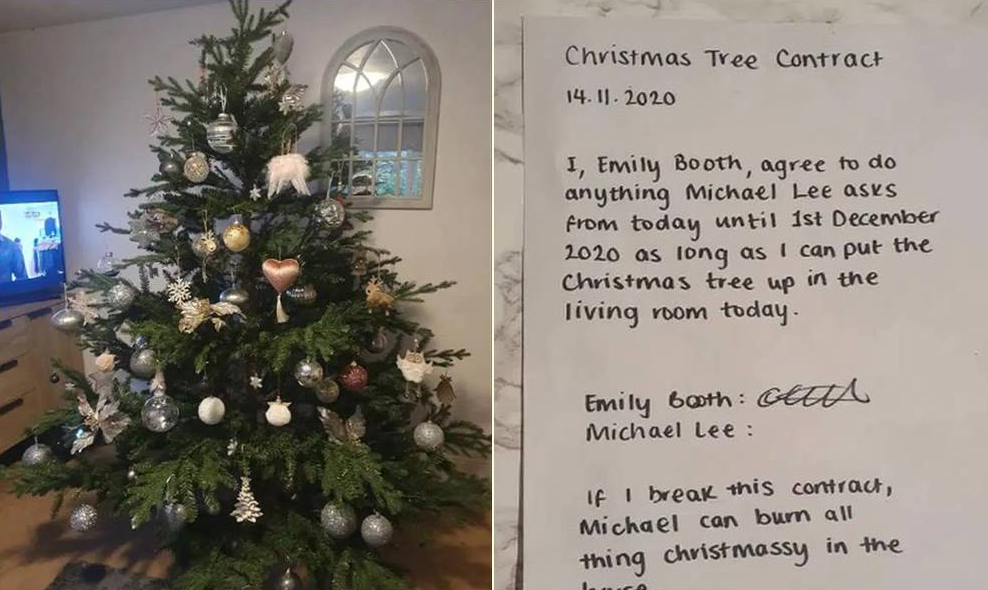 Christmas Tree Contract
14.11.2020
I, Emily Booth, agree to do
anything Michael Lee asks
from today until 1st December
2020 as long as I can put the
Christmas tree up in the
living room today.
Emily Booth:
Michael Lee:
If I break this contract,
Michael can burn all
thing christmassy in the